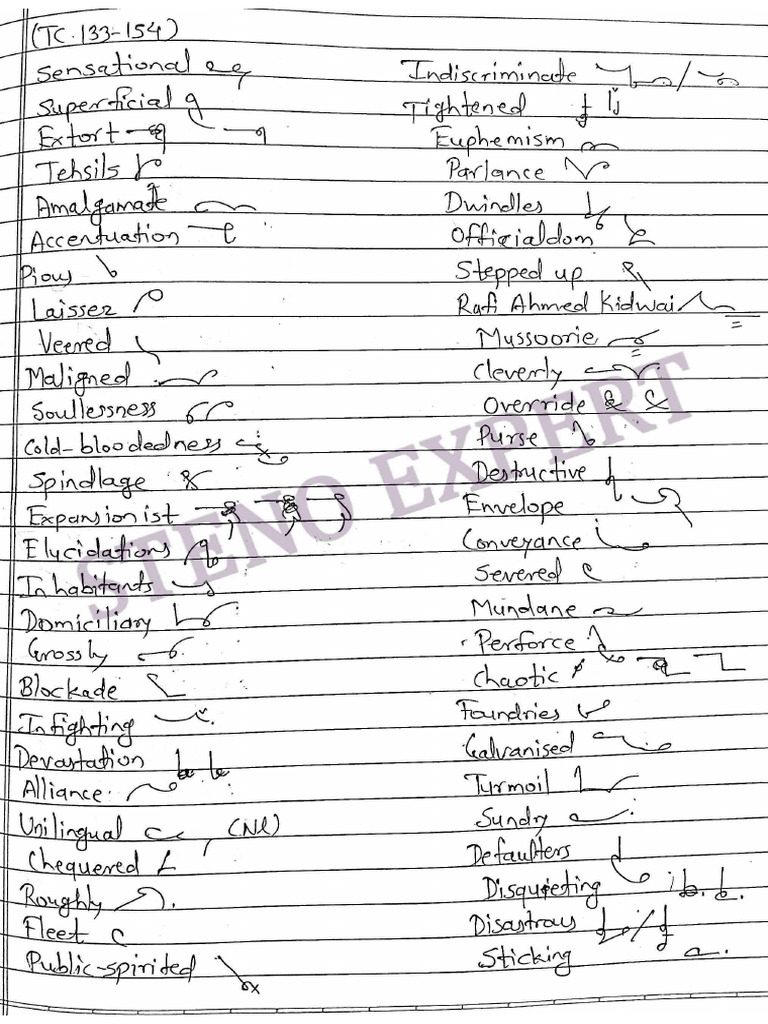 (TC.133-154)
Sensational
Superficial
Extort
Tehsils
Amalgamate
Accentuation
Pious
Laissez
Veered
Maligned
Soullessness
Cold-bloodedness
Spindlage
Expansionist
Elucidations
Inhabitants
Domiciliary
Grossly
Blockade
Infighting
Devastation
Alliance
Unilingual (NL)
Chequered
Roughly
Fleet
Public-spirited
Indiscriminate
Tightened
Euphemism
Parlance
Dwindles
Officialdom
Stepped up
Rafi Ahmed Kidwai
Mussoorie
Cleverly
Override
Purse
Destructive
Envelope
Conveyance
Severed
Mundane
Perforce
Chaotic
Foundries
Galvanised
Turmoil
Sundry
Defaulters
Disquieting
Disastrous
Sticking
STENO EXPERT